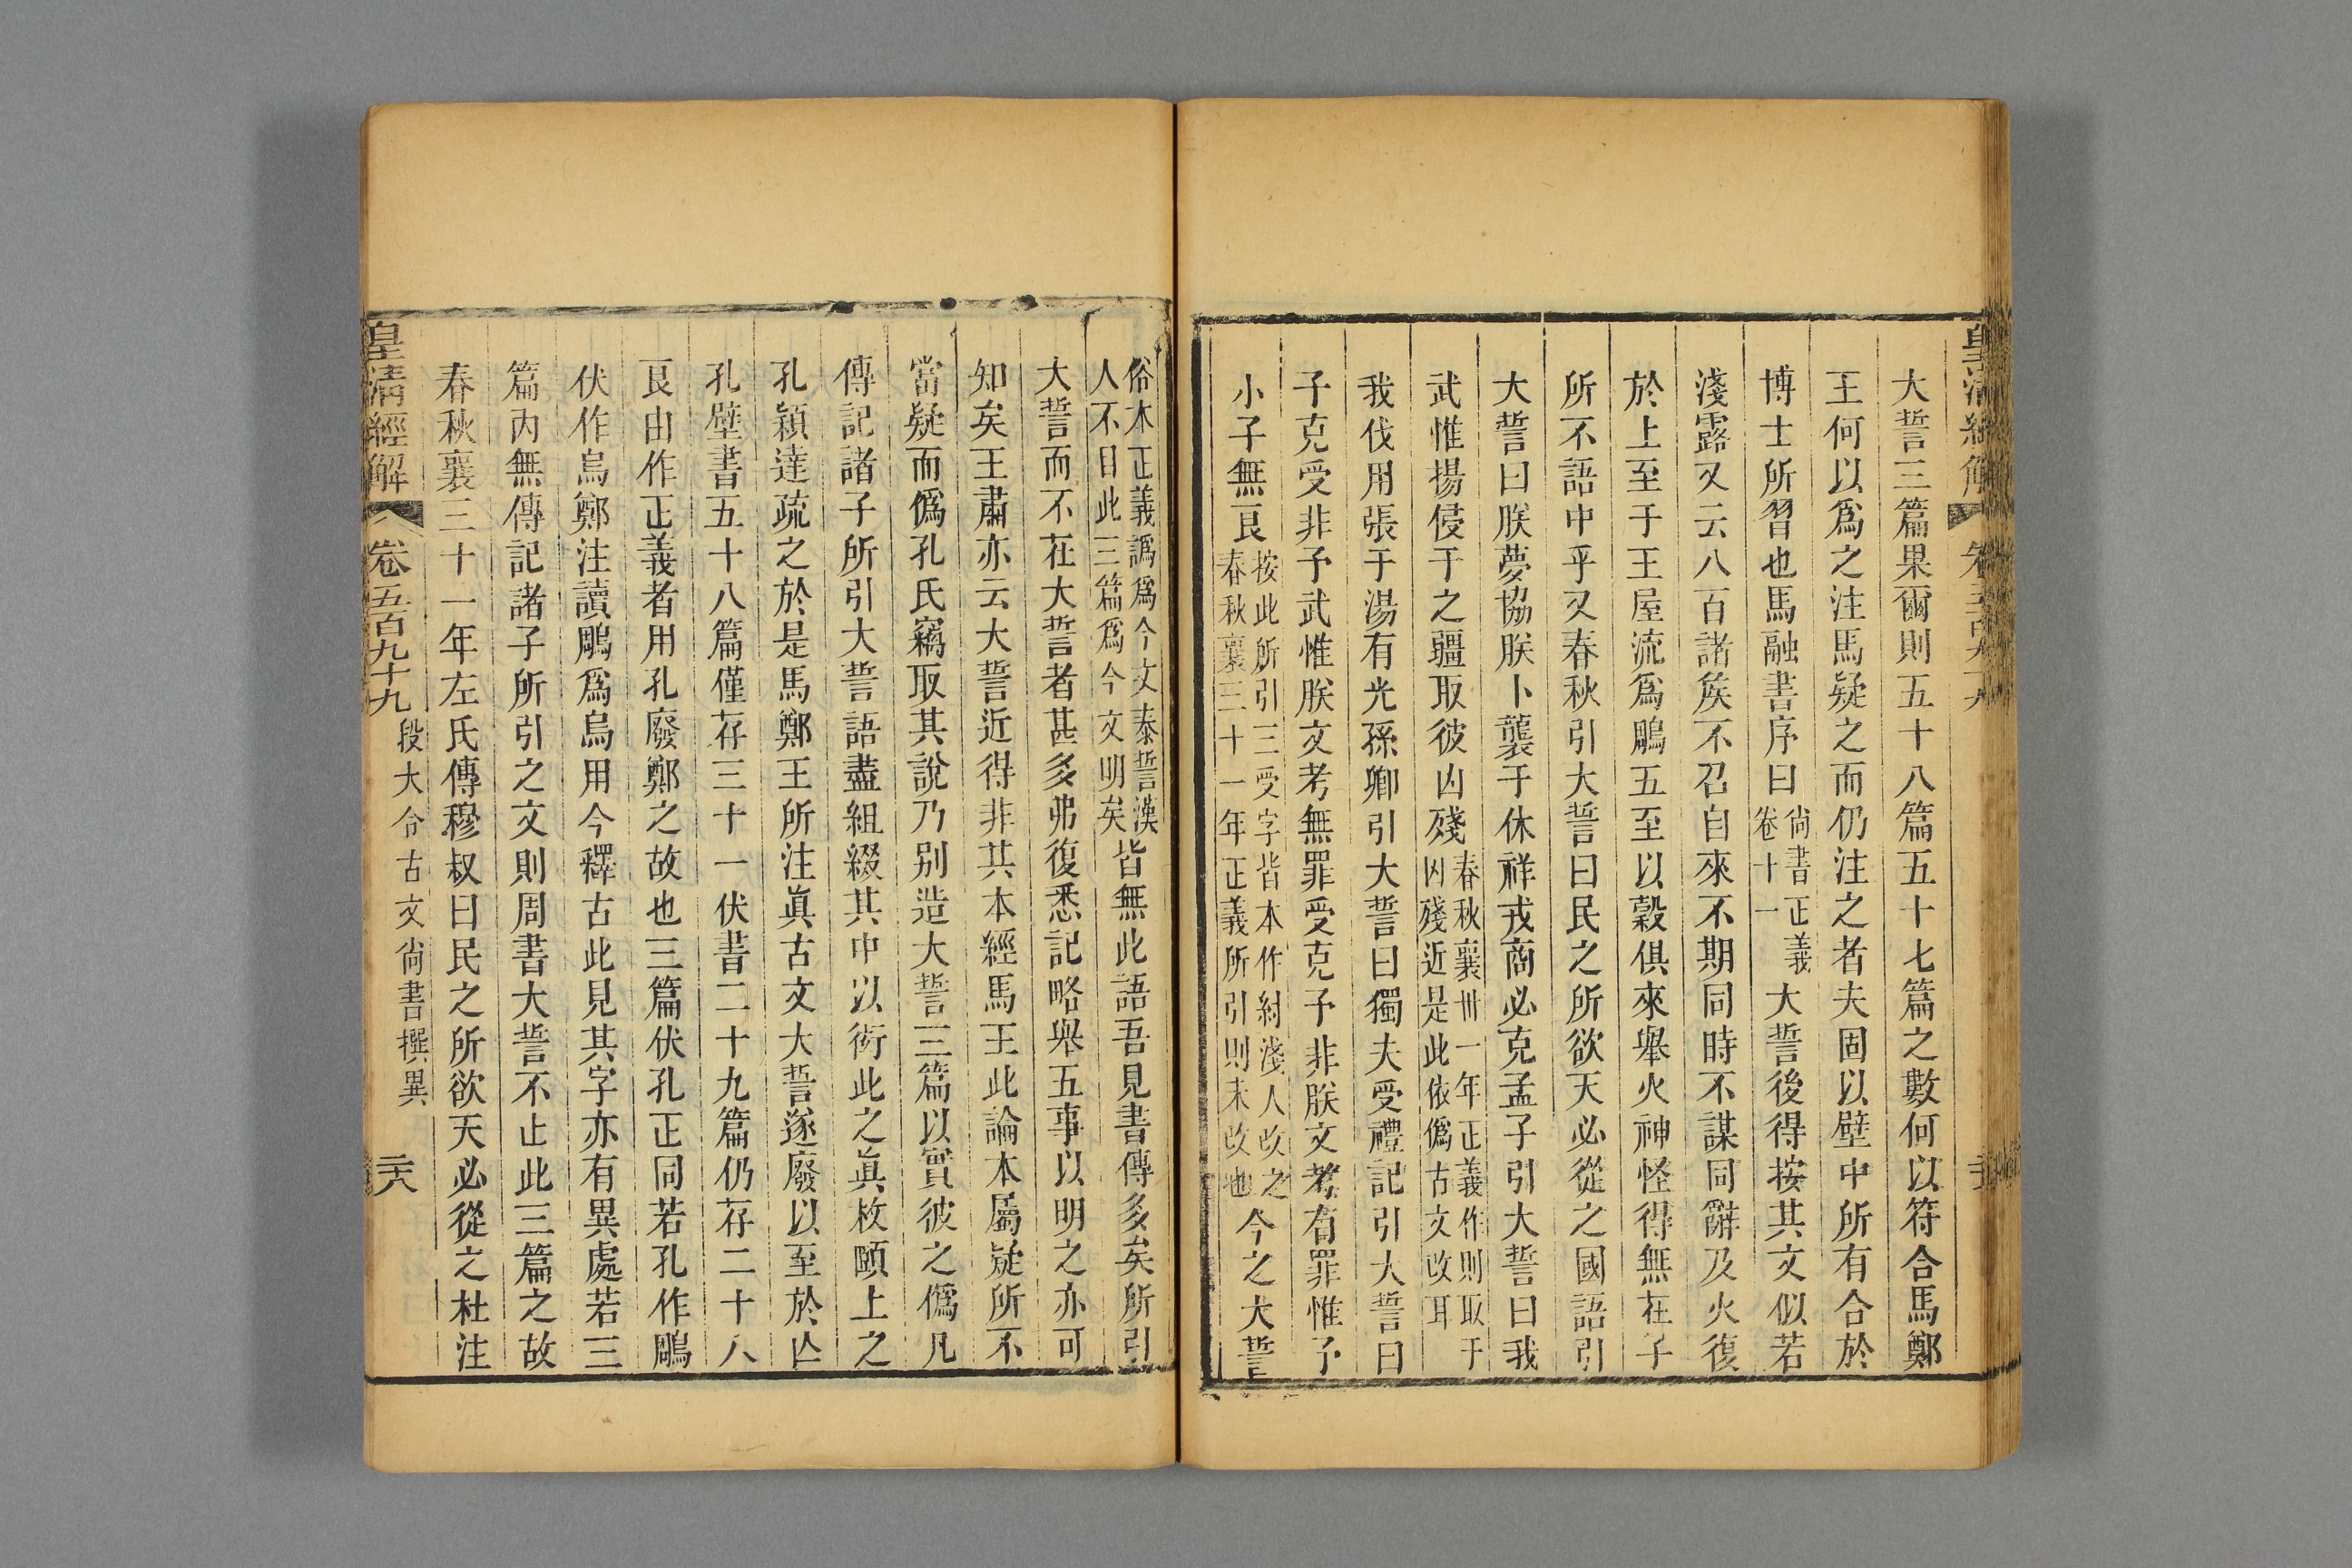 大誓三篇果爾則五十八篇五十七篇之數何以符合馬鄭
王何以爲之注馬疑之而仍注之者夫固以壁中所有合於
博士所習也馬融書序曰尙書正義卷十一大誓後得按其文似若
淺露又云八百諸矦不召自來不期同時不謀同辭及火復
於上至于王屋流爲鵰五至以穀俱來舉火神怪得無在子
所不語中乎又春秋引大誓曰民之所欲天必從之國語引
大誓曰朕夢協朕卜襲于休祥戎商必克孟子引大誓曰我
武惟揚侵于之疆取彼凶殘春秋襄卅一年正義作則取于凶殘近是此依僞古文改耳
我伐用張于湯有光孫卿引大誓曰獨夫受禮記引大誓曰
予克受非予武惟朕文考無罪受克予非朕文考有罪惟予
小子無良按此所引三受字皆本作紂淺人改之春秋襄三十一年正義所引則未改也今之大誓
俗本正義譌爲今文泰誓漢人不曰此三篇爲今文明矣皆無此語吾見書傳多矣所引
大誓而不在大誓者甚多弗復悉記略舉五事以明之亦可
知矣王肅亦云大誓近得非其本經馬王此論本屬疑所不
當疑而僞孔氏竊取其說乃别造大誓三篇以實彼之僞凡
傳記諸子所引大誓語盡組綴其中以衒此之眞枚頤上之
孔穎達疏之於是馬鄭王所注眞古文大誓遂廢以至於亾
孔壁書五十八篇僅存三十一伏書二十九篇仍存二十八
艮由作正義者用孔廢鄭之故也三篇伏孔正同若孔作鵰
伏作烏鄭注讀鵰爲烏用今釋古此見其字亦有異處若三
篇內無傳記諸子所引之文則周書大誓不止此三篇之故
春秋襄三十一年左氏傳穆叔曰民之所欲天必從之杜注
皇淸經解 卷五百九十九 段大令古文尙書撰異 二十八